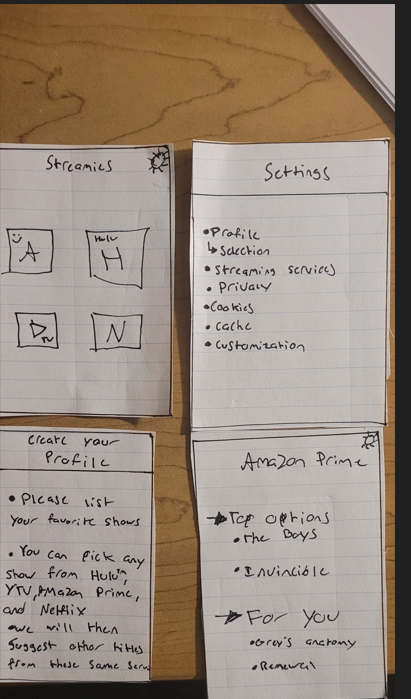 Streamies
A
Hulu
H
D
TV
N
Settings
• Profile
↳ Selection
• Streaming services
• Privacy
• Cookies
• Cache
• Customization
Create your
Profile
• Please list
your favorite shows
• You can pick any
show from Hulu,
YTV, Amazon Prime,
and Netflix
• we will then
suggest other titles
from these same
Amazon Prime
→ Top options
• The Boys
• Invincible
→ For You
• Grey's anatomy
• Renewal